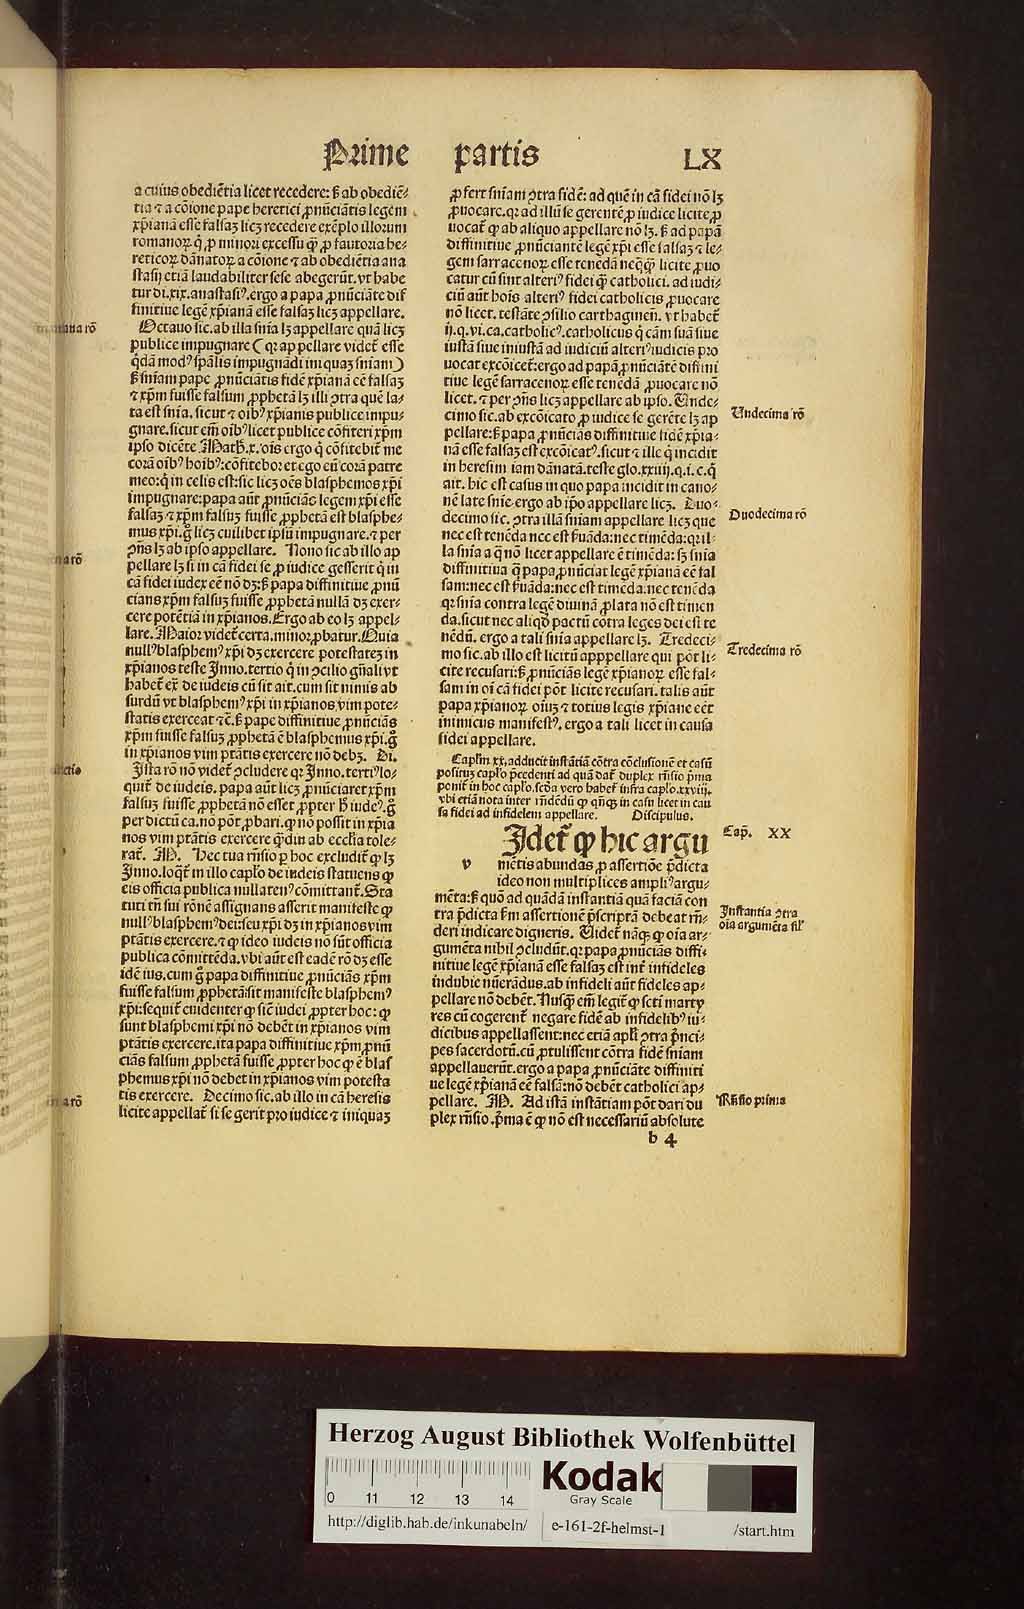 Prime partis LX
a cuius obediẽtia licet recedere: ꝫ ab obediẽ⸗
tia ⁊ a cõione pape heretici ꝓnũciãtis legem
xp̃ianã esse falsaꝫ licꝫ recedere exẽplo illorum
romanoꝝ q̃ ꝓ minori excessu q̃ ꝓ fautoria he⸗
reticoꝝ dãnatoꝝ a cõione ⁊ ab obediẽtia ana
stasij etiã laudabiliter sese abegerũt. vt habe
tur di.xix.anastasiꝰ.ergo a papa ꝓnũciãte dif
finitiue legẽ xp̃ianã esse falsaꝫ licꝫ appellare.
Octauo sic.ab illa snĩa lꝫ appellare quã licꝫ
publice impugnare (qꝛ appellare videt̃ esse
q̃dã modꝰ sp̃alis impugnãdi iniquaꝫ snĩam)
ꝫ snĩam pape ꝓnũciãtis fidẽ xp̃ianã eẽ falsaꝫ
⁊ xp̃m fuisse falsum ꝓphetã lꝫ illi ꝯtra quẽ la⸗
ta est snĩa. sicut ⁊ oĩbꝰ xp̃ianis publice impu⸗
gnare.sicut em̃ oĩbꝰ licet publice cõfiteri xp̃m
ipso dicẽte Math.x.oĩs ergo q̃ cõfitebit̃ me
corã oĩbꝰ hoĩbꝰ:cõfitebor et ego eũ corã patre
meo:q̃ in celis est:sic licꝫ oẽs blasphemos xp̃i
impugnare:papa aũt ꝓnũciãs legem xp̃i esse
falsaꝫ ⁊ xp̃m falsuꝫ fuisse ꝓphetã est blasphe⸗
mus xp̃i.g̃ licꝫ cuilibet ipsũ impugnare.⁊ per
ꝯñs lꝫ ab ipso appellare. Nono sic ab illo ap
pellare lꝫ si in cã fidei se ꝓ iudice gesserit q̃ in
cã fidei iudex eẽ nõ dꝫ:ꝫ papa diffinitiue ꝓnũ
cians xp̃m falsuꝫ fuisse ꝓphetã nullã dꝫ exer⸗
cere potẽtiã in xp̃ianos.Ergo ab eo lꝫ appel⸗
lare. Maior videt̃ certa.minor ꝓbatur.Quia
nullꝰ blasphemꝰ xp̃i dꝫ exercere potestateꝫ in
xp̃ianos teste Inno.tertio q̃ in ꝯcilio gñali vt
habet̃ ex̃ de iudeis cũ sit ait.cum sit nimis ab
surdũ vt blasphemꝰ xp̃i in xp̃ianos vim pote⸗
statis exerceat ⁊c̃.ꝫ pape diffinitiue ꝓnũciãs
xp̃m fuisse falsuꝫ ꝓphetã ẽ blasphemus xp̃i.g̃
in xp̃ianos vim ptãtis exercere nõ debꝫ. Di.
Ista rõ nõ videt̃ ꝯcludere qꝛ Inno.tertiꝰ lo⸗
quit̃ de iudeis. papa aũt licꝫ ꝓnũciaret xp̃m
falsuꝫ fuisse ꝓphetã nõ esset ꝓpter h̃ iudeꝰ.g̃
per dictũ ca.nõ põt ꝓbari.ꝙ nõ possit in xp̃ia
nos vim ptãtis exercere q̃diu ab ecclĩa tole⸗
rat̃. M. Hec tua rñsio ꝑ hoc excludit̃ ꝙ lꝫ
Inno.loq̃t̃ in illo caplo de iudeis statuens ꝙ
eis officia publica nullatenꝰ cõmittant̃.Sta
tuti tñ sui rõnẽ assignans asserit manifeste ꝙ
nullꝰ blasphemꝰ dei:seu xp̃i dꝫ in xp̃ianos vim
ptãtis exercere.⁊ ꝙ ideo iudeis nõ sũt officia
publica cõmittẽda.vbi aũt est eadẽ rõ dꝫ esse
idẽ ius.cum g̃ papa diffinitiue ꝓnũciãs xp̃m
fuisse falsum ꝓphetã:sit manifeste blasphemꝰ
xp̃i:sequit̃ euidenter ꝙ sic̃ iudei ꝓpter hoc: ꝙ
sunt blasphemi xp̃i nõ debẽt in xp̃ianos vim
ptãtis exercere.ita papa diffinitiue xp̃m ꝓnũ
ciãs falsum ꝓphetã fuisse ꝓpter hoc ꝙ ẽ blas
phemus xp̃i nõ debet in xp̃ianos vim potesta
tis exercere. Decimo sic.ab illo in cã heresis
licite appellat̃ si se gerit pro iudice ⁊ iniquaꝫ
ꝓfert snĩam ꝯtra fidẽ: ad quẽ in cã fidei nõ lꝫ
ꝓuocare.qꝛ ad illũ se gerentẽ ꝓ iudice licite ꝓ
uocat̃ ꝙ ab aliquo appellare nõ lꝫ. ꝫ ad papã
diffinitiue ꝓnũciantẽ legẽ xp̃i esse falsaꝫ ⁊ le⸗
gem sarracenoꝝ esse tenẽdã neq̃q̃ licite ꝓuo
catur cũ sint alteriꝰ fidei q̃ catholici. ad iudi⸗
ciũ aũt hoĩs alteriꝰ fidei catholicis ꝓuocare
nõ licet. testãte ꝯsilio carthaginen̄. vt habet̃
ij.q.vi.ca.catholicꝰ.catholicus q̃ cãm suã siue
iustã siue iniustã ad iudiciũ alteriꝰ iudicis pro
uocat excõicet̃:ergo ad papã ꝓnũciãtẽ diffini
tiue legẽ sarracenoꝝ esse tenẽdã ꝓuocare nõ
licet. ⁊ per ꝯñs licꝫ appellare ab ipso. Unde⸗
cimo sic.ab excõicato ꝓ iudice se gerẽte lꝫ ap
pellare:ꝫ papa ꝓnũciãs diffinitiue fidẽ xp̃ia⸗
nã esse falsaꝫ est excõicatꝰ.sicut ⁊ ille q̃ incidit
in heresim iam dãnatã.teste glo.xxiiij.q.i.c.q̃
ait. hic est casus in quo papa incidit in cano⸗
nẽ late snĩe.ergo ab ip̃o appellare licꝫ. Duo⸗
decimo sic. ꝯtra illã snĩam appellare licꝫ que
nec est tenẽda nec est ẽuãda:nec timẽda:qꝛ il⸗
la snĩa a q̃ nõ licet appellare ẽ timẽda: ꝫ snĩa
diffinitiua q̃ papa ꝓnũciat legẽ xp̃ianã eẽ fal
sam:nec est ẽuãda:nec est timẽda.nec tenẽda
qꝛ snĩa contra legẽ diuinã ꝓlata nõ est timen
da.sicut nec aliqd̃ pactũ cõtra leges dei est te
nẽdũ. ergo a tali snĩa appellare lꝫ. Tredeci⸗
mo sic.ab illo est licitũ apppellare qui põt li⸗
cite recusari:ꝫ ꝓnũciãs legẽ xp̃ianoꝝ esse fal⸗
sam in oĩ cã fidei põt licite recusari. talis aũt
papa xp̃ianoꝝ oĩuꝫ ⁊ totius legis xp̃iane eẽt
inimicus manifestꝰ. ergo a tali licet in causa
fidei appellare.
Caplm xx.adducit instãtiã cõtra cõclusionẽ et casũ
posituꝫ caplo p̃cedenti ad quã dat̃ duplex rñsio p̃ma
ponit̃ in hoc caplo.scd̃a vero habet̃ infra caplo.xxviij.
vbi etiã nota inter rñdẽdũ ꝙ qñqꝫ in casu licet in cau
sa fidei ad infidelem appellare. Discipulus.
Uidet̃ ꝙ hic argu
v mẽtis abundas ꝓ assertiõe p̃dicta
ideo non multiplices ampliꝰ argu⸗
mẽta:ꝫ quõ ad quãdã instantiã quã faciã con
tra p̃dicta ẽm assertionẽ p̃scriptã debeat rñ⸗
deri indicare digneris. Uidet̃ nãqꝫ ꝙ oĩa ar⸗
gumẽta nihil ꝯcludũt.qꝛ papa ꝓnũciãs diffi⸗
nitiue legẽ xp̃ianã esse falsaꝫ est int̃ infideles
indubie nũerãdus.ab infideli aũt fideles ap⸗
pellare nõ debẽt.Nusq̃ em̃ legit̃ ꝙ scti marty
res cũ cogerent̃ negare fidẽ ab infidelibꝰ iu⸗
dicibus appellassent:nec etiã apli ꝯtra p̃nci⸗
pes sacerdotũ.cũ ꝓtulissent cõtra fidẽ snĩam
appellauerũt.ergo a papa ꝓnũciãte diffiniti
ue legẽ xp̃ianã eẽ falsã:nõ debẽt catholici ap⸗
pellare. M. Ad istã instãtiam põt dari du
plex rñsio.p̃ma ẽ ꝙ nõ est necessariũ absolute
b 4
Undecima rõ
Duodecima rõ
Tredecima rõ
Cap. XX
Instantia ꝯtra
oĩa argumẽta sil̃
Rñsio prima
Herzog August Bibliothek Wolfenbüttel
Kodak
Gray Scale
0 11 12 13 14
http://diglib.hab.de/inkunabeln/ e-161-2f-helmst-1 /start.htm